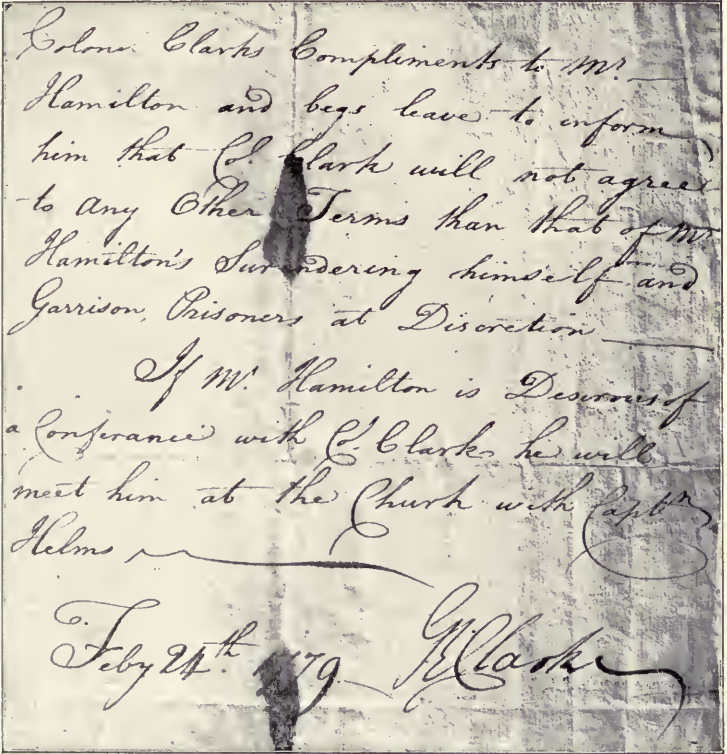 Colone. Clarks Compliments to Mr.
Hamilton and begs leave to inform
him that Col. Clark will not agree
to any Other Terms than that of Mr.
Hamilton's Surindering himself and
Garrison, Prisoners at Discretion
If Mr. Hamilton is Desirous of
a Conferance with Col. Clark he will
meet him at the Church with Captn
Helms
Feby 24th. 1779 GR Clark